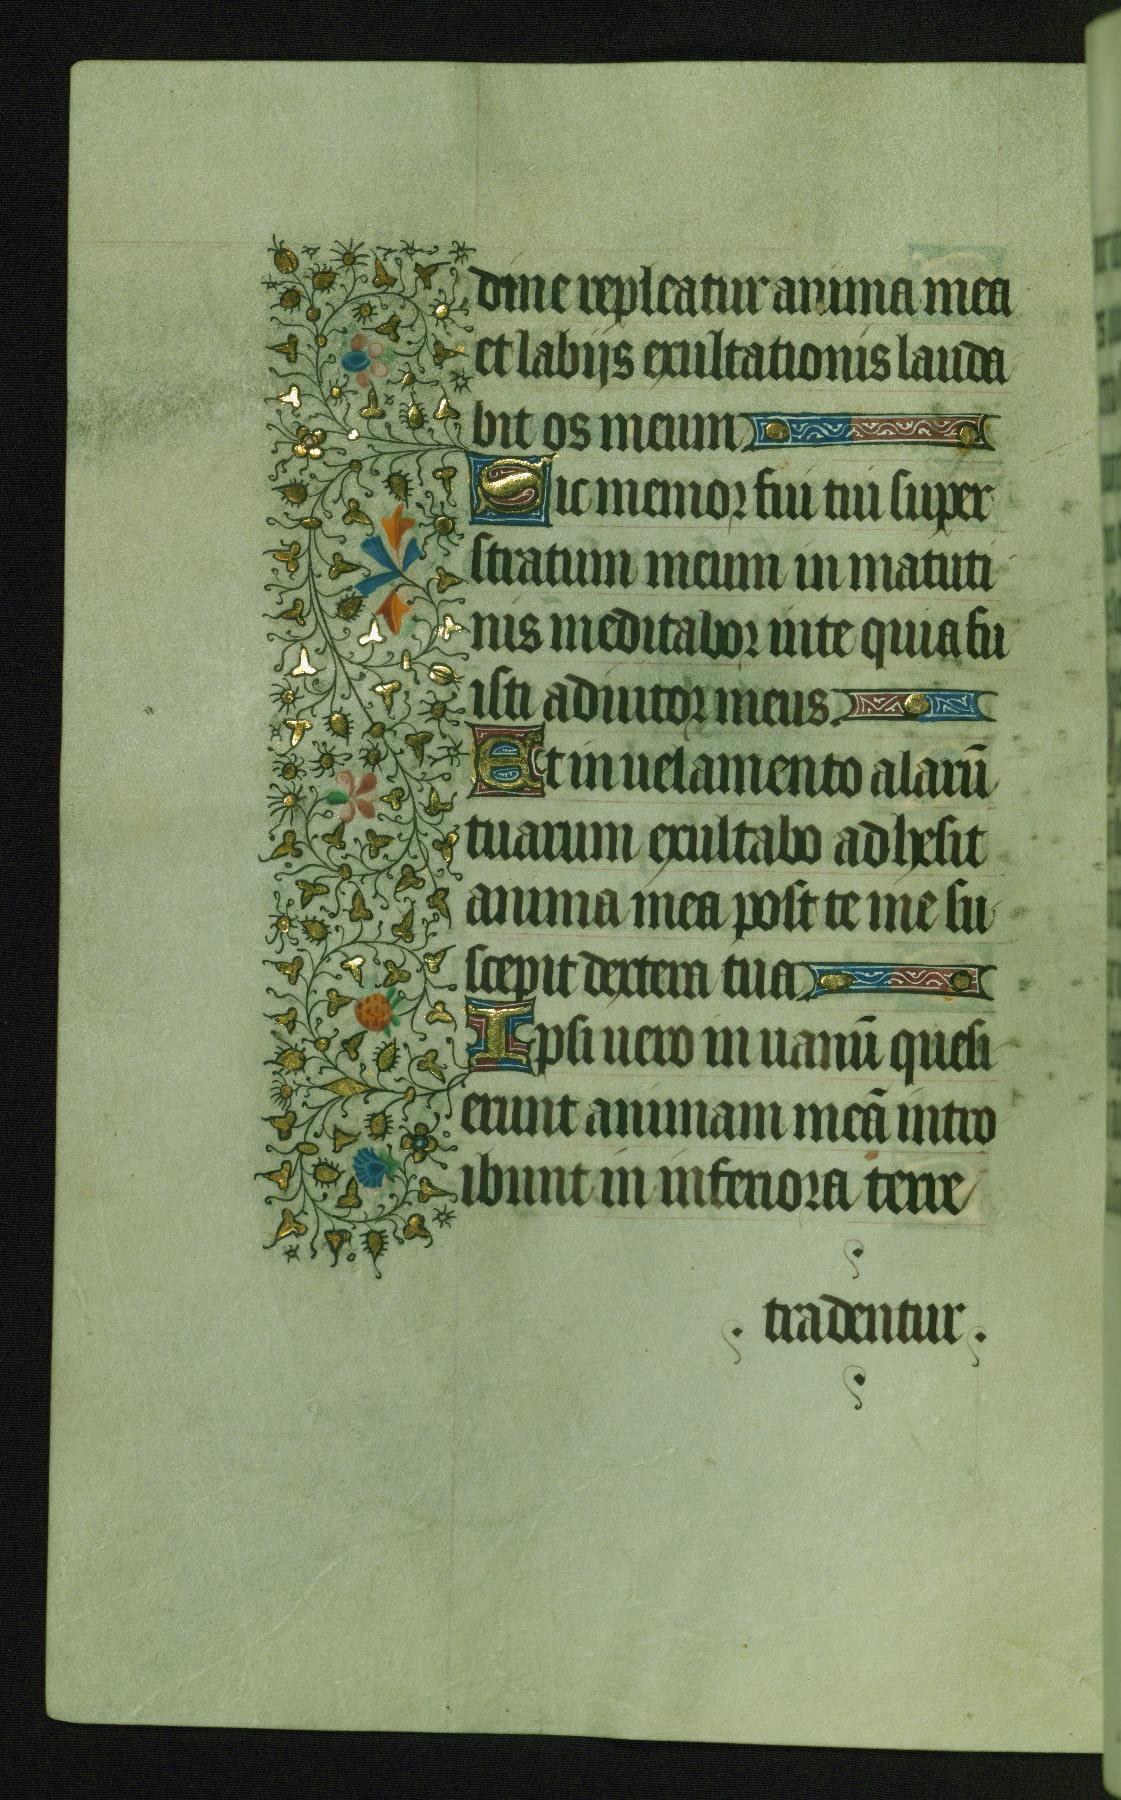 dine repleatur anima mea
et labijs exultationis lauda
bit os meum
Sic memor fui tui super
stratum meum in matuti
nis meditabor inte quia fu
isti adiutor meus.
Et in uelamento alarū
tuarum exultabo adhesit
anima mea post te me su
scepit dextera tua
Ipsi uero in uanū quesi
erunt animam meā intro
ibunt in inferiora terre
. tradentur .